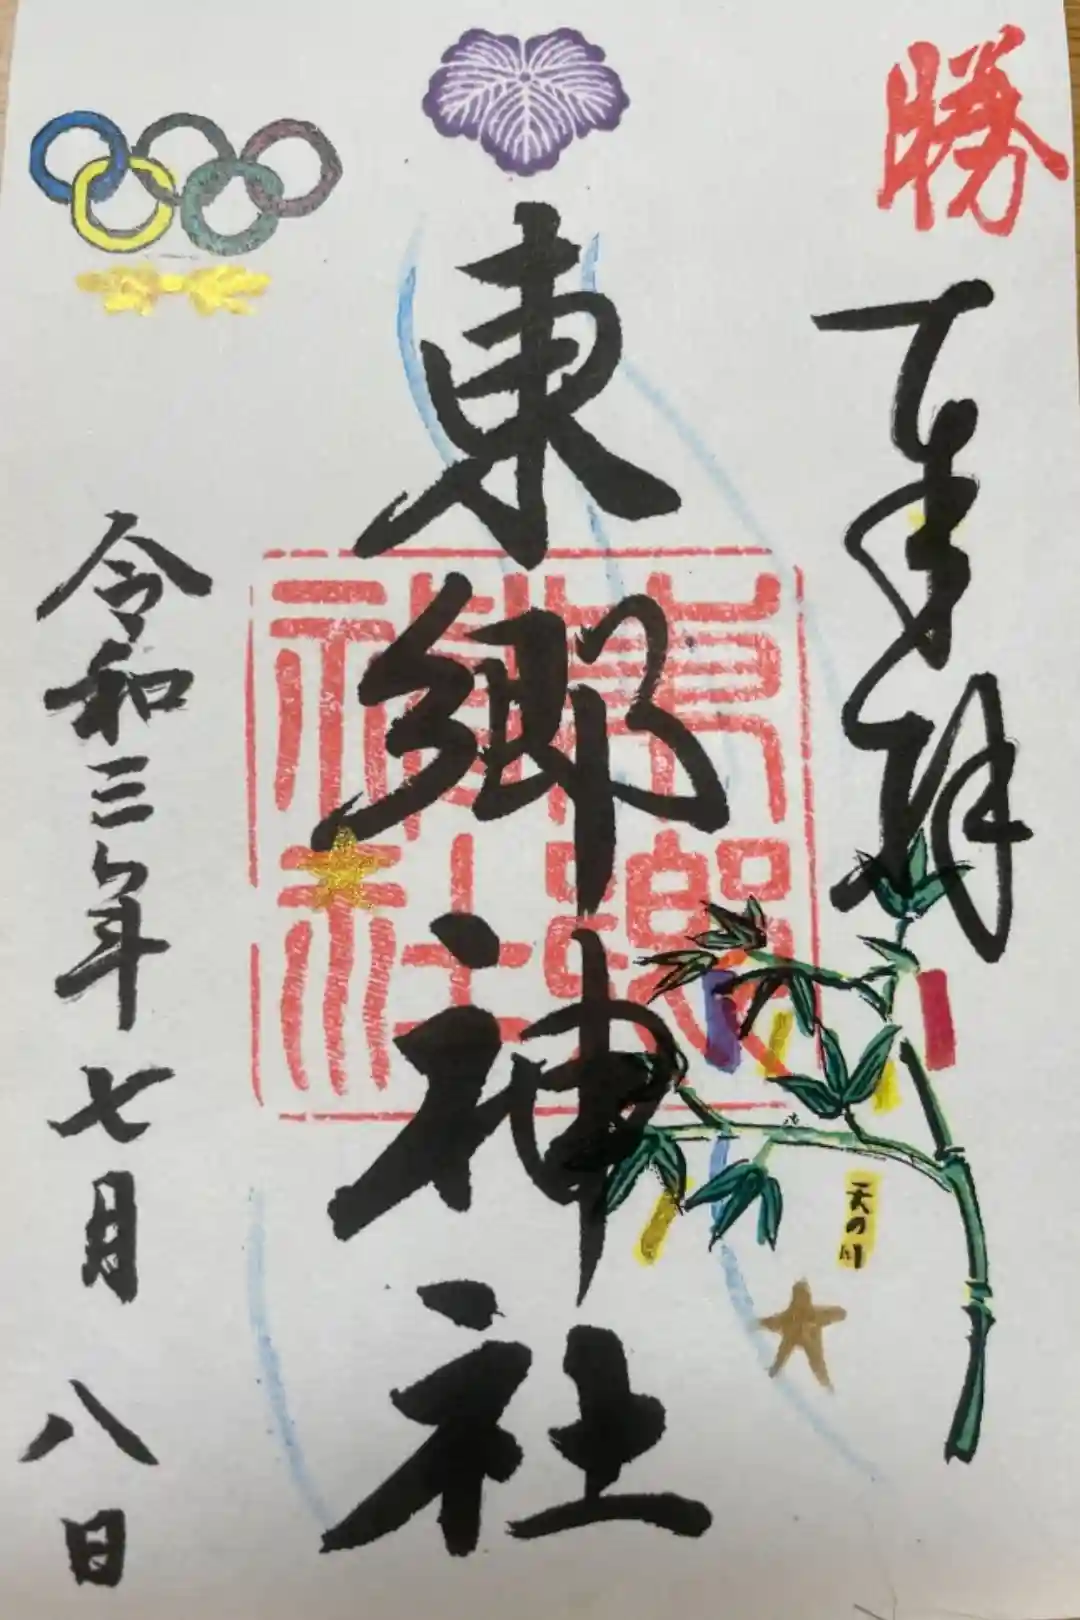 勝
奉拝
東郷神社
令和三年七月八日
天の川